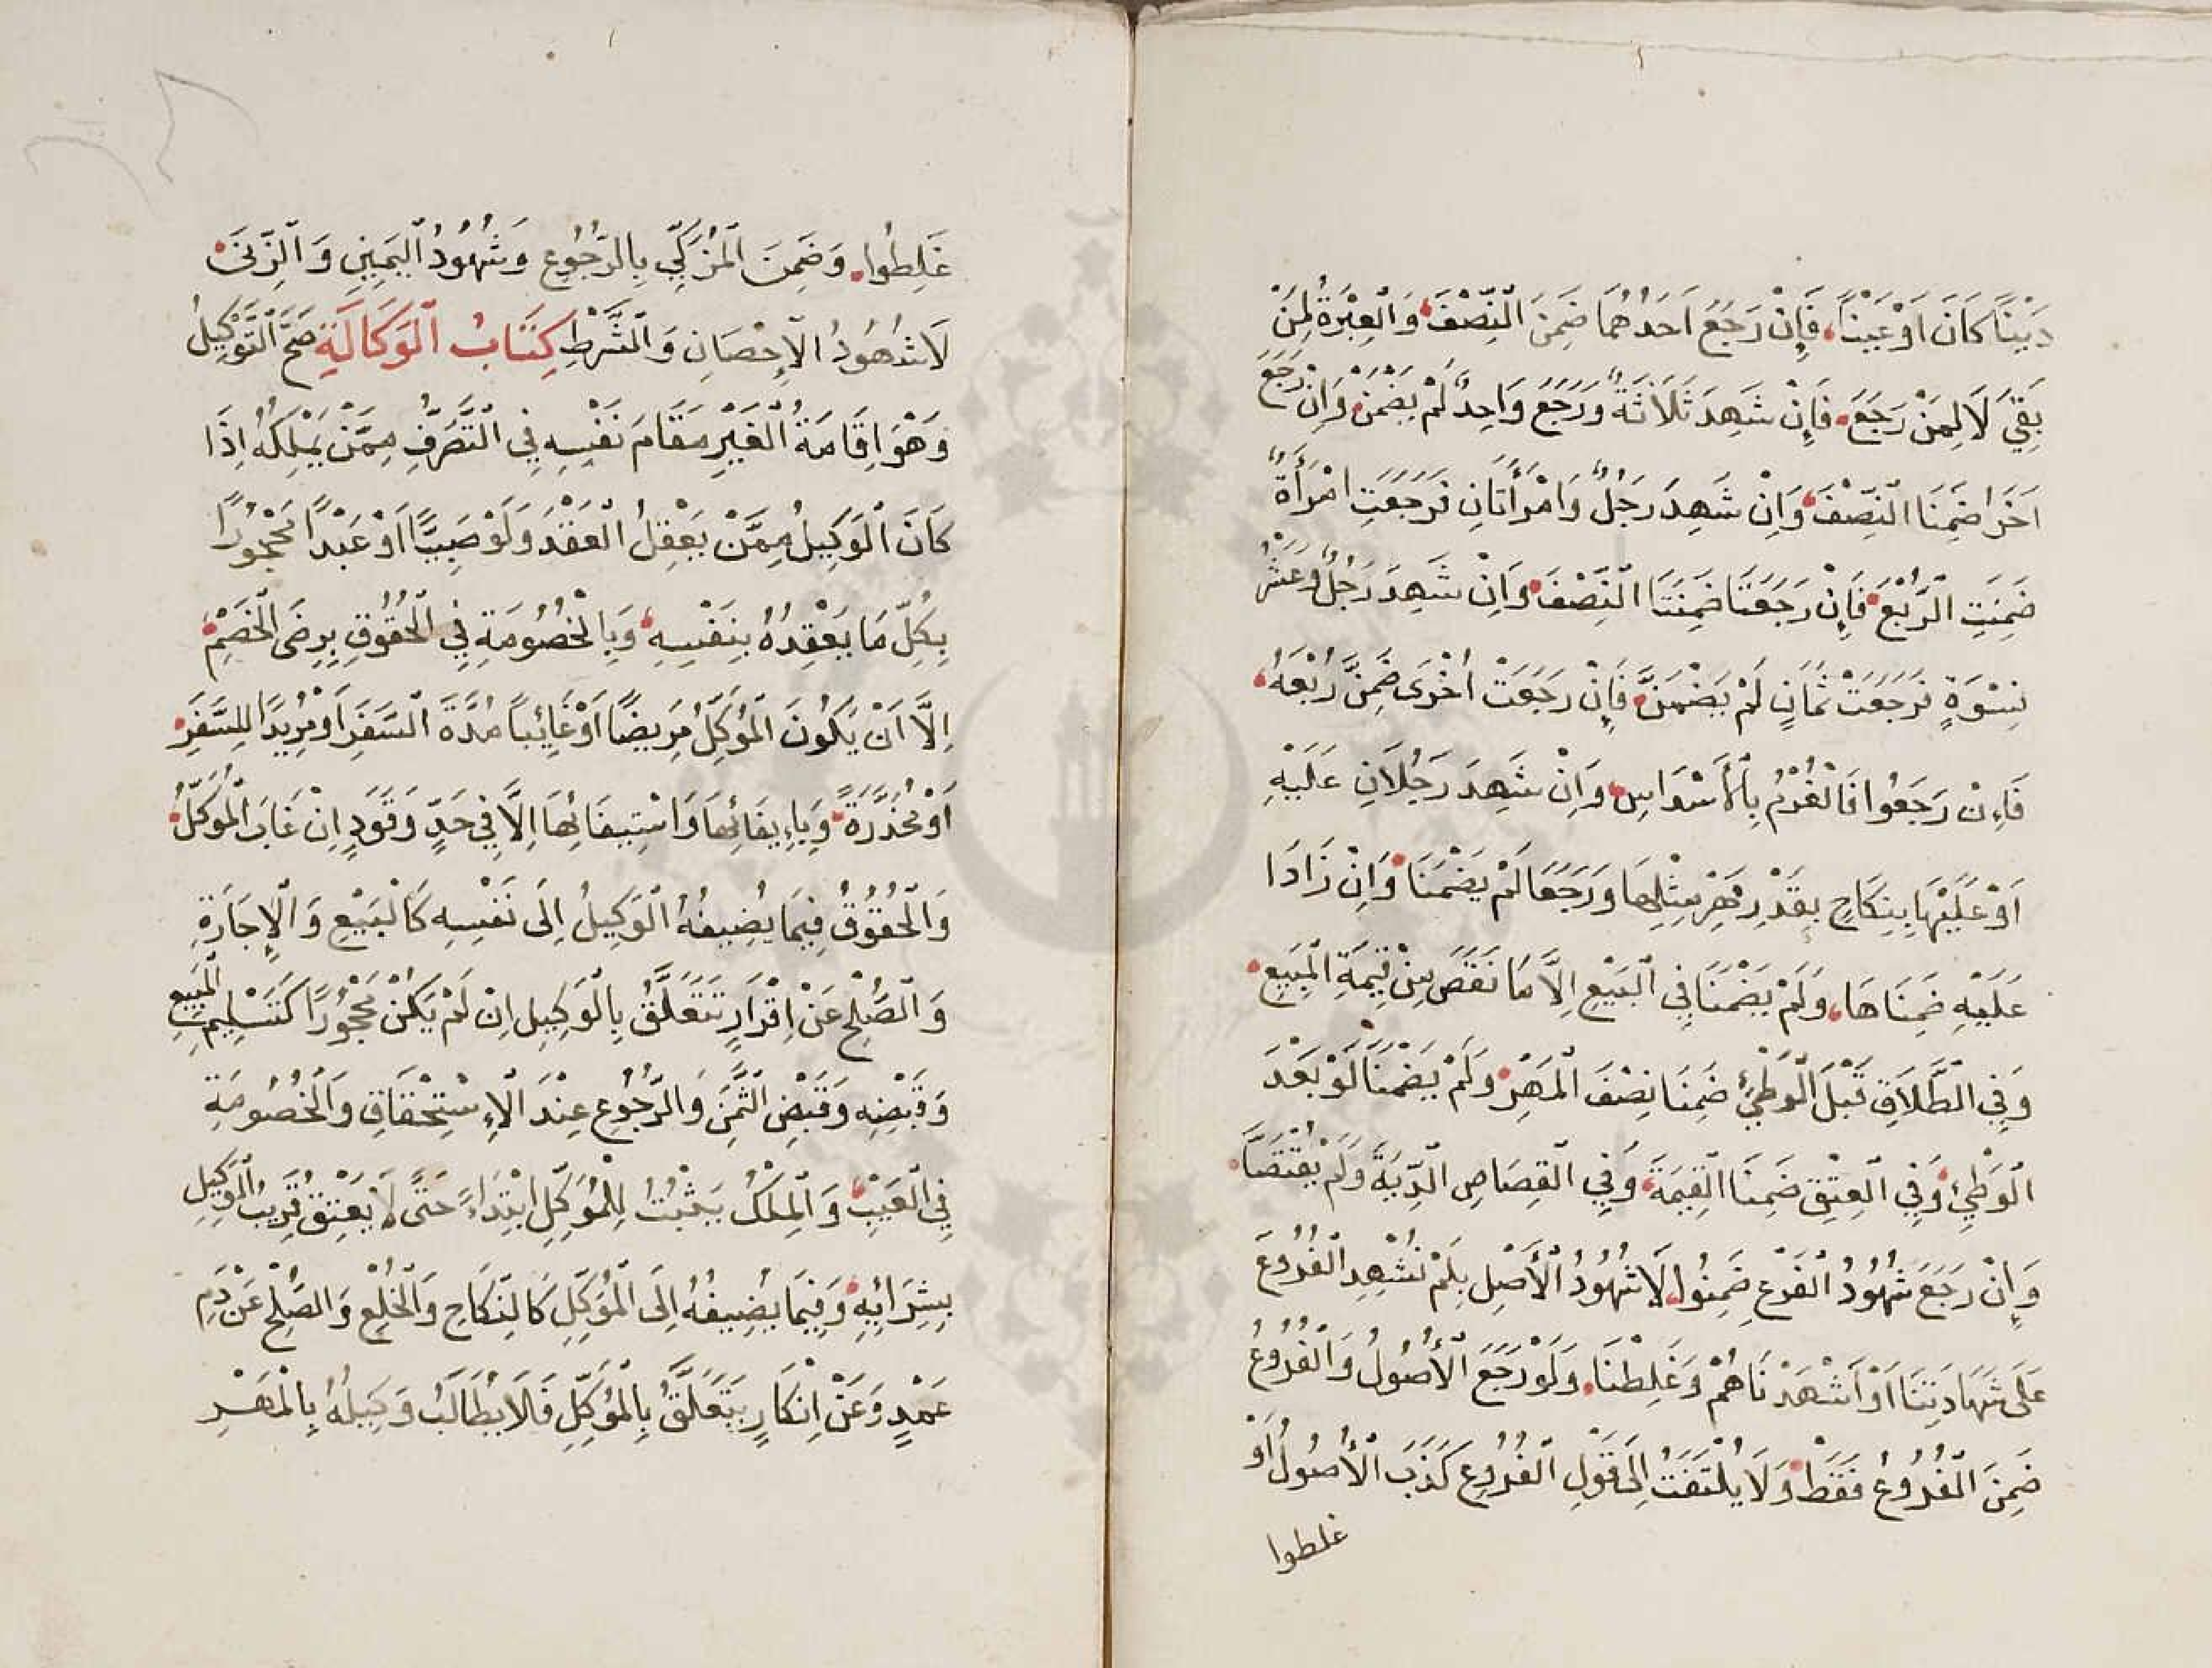 دَيْنًا كَانَ اَوْ عَيْنًا، فَاِنْ رَجَعَ اَحَدُهُمَا ضَمِنَ النِّصْفَ، وَالْعِبْرَةُ لِمَنْ
بَقِيَ لَا لِمَنْ رَجَعَ، فَاِنْ شَهِدَ ثَلَاثَةٌ وَرَجَعَ وَاحِدٌ لَمْ يَضْمَنْ، وَاِنْ رَجَعَ
اٰخَرُ ضَمِنَا النِّصْفَ، وَاِنْ شَهِدَ رَجُلٌ وَامْرَأَتَانِ فَرَجَعَتِ امْرَأَةٌ
ضَمِنَتِ الرُّبْعَ، فَاِنْ رَجَعَتَا ضَمِنَتَا النِّصْفَ، وَاِنْ شَهِدَ رَجُلٌ وَعَشْرُ
نِسْوَةٍ فَرَجَعَتْ ثَمَانٍ لَمْ يَضْمَنَّ، فَاِنْ رَجَعَتْ اُخْرَى ضَمِنَّ رُبْعَهُ،
فَاِنْ رَجَعُوا فَالْغُرْمُ بِالْأَسْدَاسِ، وَاِنْ شَهِدَ رَجُلَانِ عَلَيْهِ
اَوْ عَلَيْهَا بِنِكَاحٍ بِقَدْرِ مَهْرِ مِثْلِهَا وَرَجَعَا لَمْ يَضْمَنَا، وَاِنْ زَادَا
عَلَيْهِ ضَمِنَاهَا، وَلَمْ يَضْمَنَا فِي الْبَيْعِ اِلَّا مَا نَقَصَ مِنْ قِيمَةِ الْمَبِيعِ،
وَفِي الطَّلَاقِ قَبْلَ الْوَطْئِ ضَمِنَا نِصْفَ الْمَهْرِ، وَلَمْ يَضْمَنَا لَوْ بَعْدَ
الْوَطْئِ، وَفِي الْعِتْقِ ضَمِنَا الْقِيمَةَ، وَفِي الْقِصَاصِ الدِّيَةَ وَلَمْ يُقْتَصَّا،
وَاِنْ رَجَعَ شُهُودُ الْفَرْعِ ضَمِنُوا، لَا شُهُودُ الْأَصْلِ بِلَمْ نُشْهِدِ الْفُرُوعَ
عَلَى شَهَادَتِنَا اَوْ اَشْهَدْنَاهُمْ وَغَلِطْنَا، وَلَوْ رَجَعَ الْأُصُولُ وَالْفُرُوعُ
ضَمِنَ الْفُرُوعُ فَقَطْ، وَلَا يُلْتَفَتُ اِلَى قَوْلِ الْفُرُوعِ كَذَبَ الْأُصُولُ اَوْ
غلطوا
غَلِطُوا، وَضَمِنَ الْمُزَكِّي بِالرُّجُوعِ وَشُهُودُ الْيَمِينِ وَالزِّنَى،
لَا شُهُودُ الْاِحْصَانِ وَالشَّرْطِ كِتَابُ الْوَكَالَةِ صَحَّ التَّوْكِيلُ
وَهُوَ اِقَامَةُ الْغَيْرِ مَقَامَ نَفْسِهِ فِي التَّصَرُّفِ مِمَّنْ يَمْلِكُهُ اِذَا
كَانَ الْوَكِيلُ مِمَّنْ يَعْقِلُ الْعَقْدَ وَلَوْ صَبِيًّا اَوْ عَبْدًا مَحْجُورًا
بِكُلِّ مَا يَعْقِدُهُ بِنَفْسِهِ، وَبِالْخُصُومَةِ فِي الْحُقُوقِ بِرِضَى الْخَصْمِ،
اِلَّا اَنْ يَكُونَ الْمُوَكِّلُ مَرِيضًا اَوْ غَائِبًا مُدَّةَ السَّفَرِ اَوْ مُرِيدًا لِلسَّفَرِ،
اَوْ مُخَدَّرَةً، وَبِاِيفَائِهَا وَاسْتِيفَائِهَا اِلَّا فِي حَدٍّ وَقَوَدٍ اِنْ غَابَ الْمُوَكِّلُ،
وَالْحُقُوقُ فِيمَا يُضِيفُهُ الْوَكِيلُ اِلَى نَفْسِهِ كَالْبَيْعِ وَالْاِجَارَةِ
وَالصُّلْحِ عَنْ اِقْرَارٍ تَتَعَلَّقُ بِالْوَكِيلِ اِنْ لَمْ يَكُنْ مَحْجُورًا كَتَسْلِيمِ الْمَبِيعِ
وَقَبْضِهِ وَقَبْضِ الثَّمَنِ وَالرُّجُوعِ عِنْدَ الْاِسْتِحْقَاقِ وَالْخُصُومَةِ
فِي الْعَيْبِ، وَالْمِلْكُ يَثْبُتُ لِلْمُوَكِّلِ ابْتِدَاءً حَتَّى لَا يَعْتِقُ قَرِيبُ الْوَكِيلِ
بِشِرَائِهِ، وَفِيمَا يُضِيفُهُ اِلَى الْمُوَكِّلِ كَالنِّكَاحِ وَالْخُلْعِ وَالصُّلْحِ عَنْ دَمِ
عَمْدٍ وَعَنْ اِنْكَارٍ يَتَعَلَّقُ بِالْمُوَكِّلِ فَلَا يُطَالَبُ وَكِيلُهُ بِالْمَهْرِ